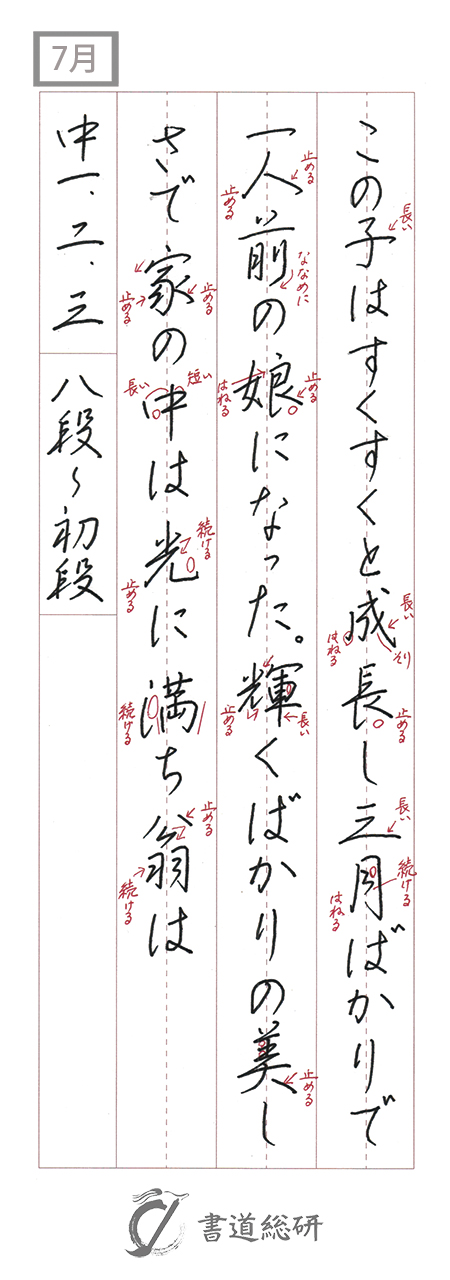 7月
この子はすくすくと成長し三月ばかりで
長い
長い
はねる
そり
止める
長い
続ける
はねる
一人前の娘になった。輝くばかりの美し
止める
止める
ななめに
はねる
止める
止める
長い
止める
さで家の中は光に満ち翁は
止める
止める
長い
短い
続ける
止める
続ける
止める
続ける
中一、二、三
八段〜初段
書道総研